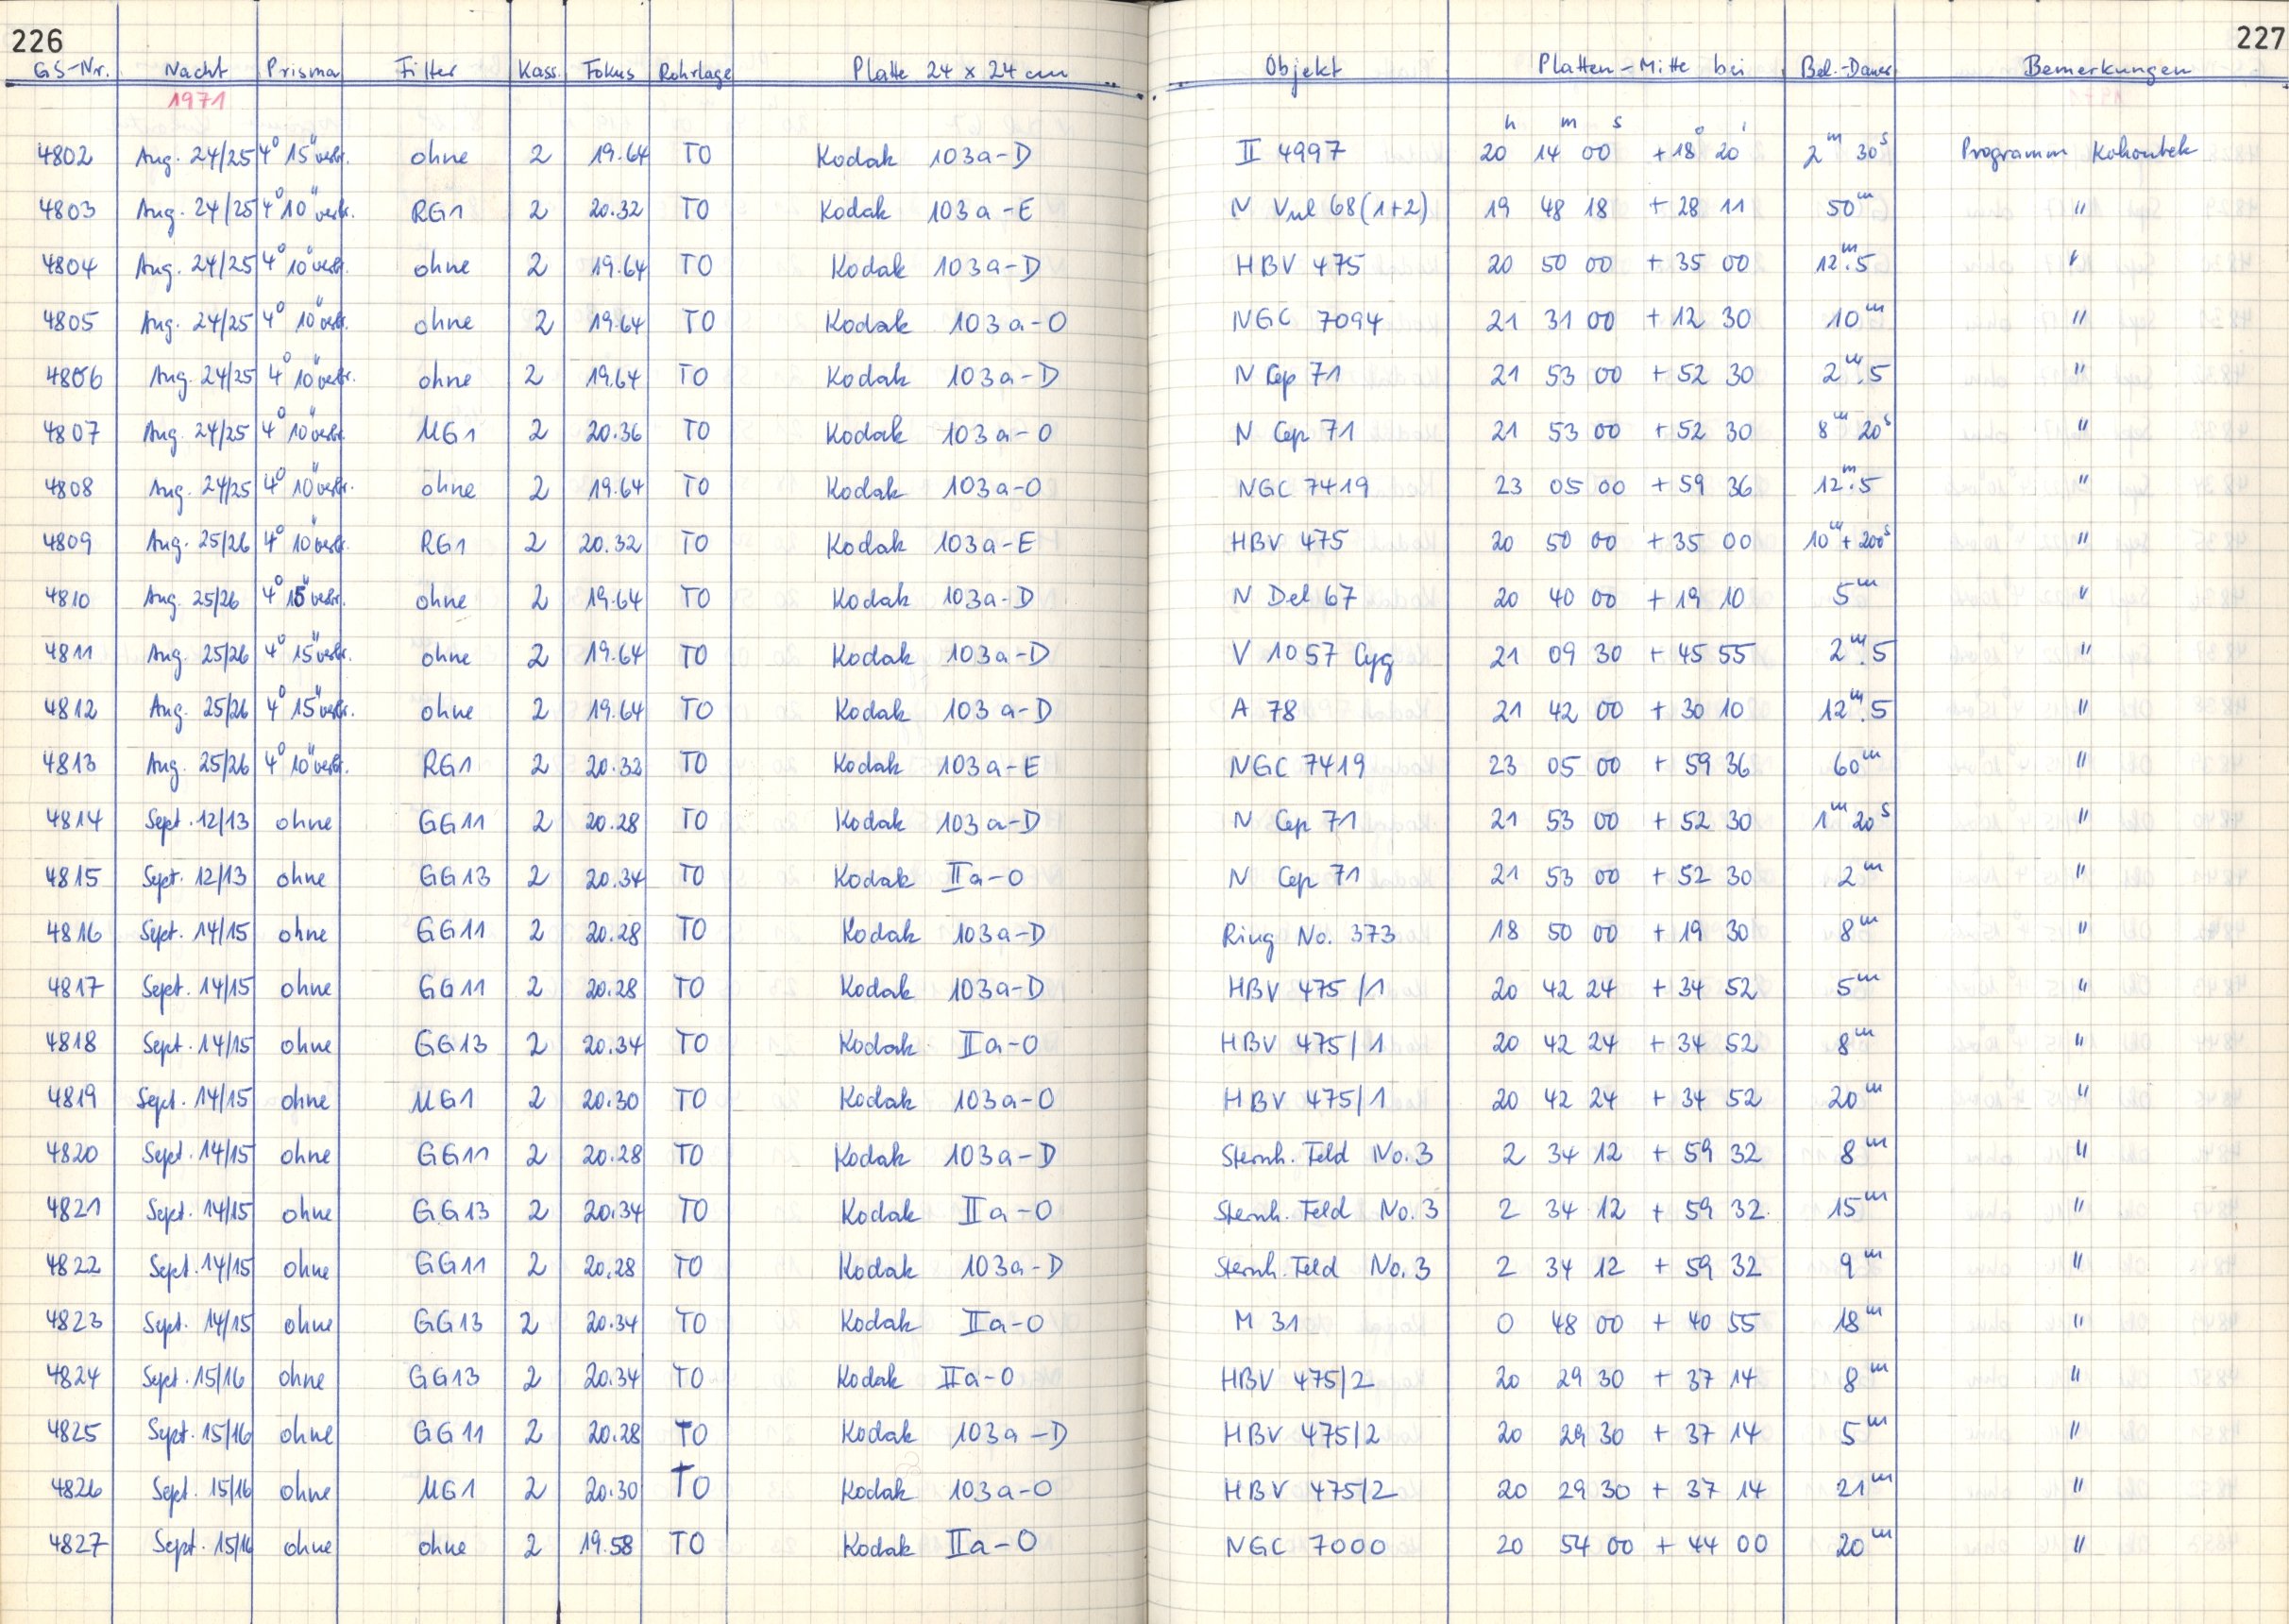 226 227
GS-Nr. Nacht Prisma Filter Kass. Fokus Rohrlage Platte 24 x 24 cm Objekt Platten-Mitte bei Bel.-Dauer Bemerkungen
1971
h m s ° '
4802 Aug. 24/25 4° 15" verbr. ohne 2 19.64 TO Kodak 103a-D II 4997 20 14 00 +18 20 2m 30s Programm Kohoutek
4803 Aug. 24/25 4° 10" verbr. RG1 2 20.32 TO Kodak 103a-E N Vul 68 (1+2) 19 48 18 +28 11 50m "
4804 Aug. 24/25 4° 10" verbr. ohne 2 19.64 TO Kodak 103a-D HBV 475 20 50 00 +35 00 12m.5 "
4805 Aug. 24/25 4° 10" verbr. ohne 2 19.64 TO Kodak 103a-O NGC 7094 21 31 00 +12 30 10m "
4806 Aug. 24/25 4° 10" verbr. ohne 2 19.64 TO Kodak 103a-D N Cep 71 21 53 00 +52 30 2m.5 "
4807 Aug. 24/25 4° 10" verbr. UG1 2 20.36 TO Kodak 103a-O N Cep 71 21 53 00 +52 30 8m 20s "
4808 Aug. 24/25 4° 10" verbr. ohne 2 19.64 TO Kodak 103a-O NGC 7419 23 05 00 +59 36 12m.5 "
4809 Aug. 25/26 4° 10" verbr. RG1 2 20.32 TO Kodak 103a-E HBV 475 20 50 00 +35 00 10m + 200s "
4810 Aug. 25/26 4° 15" verbr. ohne 2 19.64 TO Kodak 103a-D N Del 67 20 40 00 +19 10 5m "
4811 Aug. 25/26 4° 15" verbr. ohne 2 19.64 TO Kodak 103a-D V 1057 Cyg 21 09 30 +45 55 2m.5 "
4812 Aug. 25/26 4° 15" verbr. ohne 2 19.64 TO Kodak 103a-D A 78 21 42 00 +30 10 12m.5 "
4813 Aug. 25/26 4° 10" verbr. RG1 2 20.32 TO Kodak 103a-E NGC 7419 23 05 00 +59 36 60m "
4814 Sept. 12/13 ohne GG11 2 20.28 TO Kodak 103a-D N Cep 71 21 53 00 +52 30 1m 20s "
4815 Sept. 12/13 ohne GG13 2 20.34 TO Kodak IIa-O N Cep 71 21 53 00 +52 30 2m "
4816 Sept. 14/15 ohne GG11 2 20.28 TO Kodak 103a-D Ring No. 373 18 50 00 +19 30 8m "
4817 Sept. 14/15 ohne GG11 2 20.28 TO Kodak 103a-D HBV 475/1 20 42 24 +34 52 5m "
4818 Sept. 14/15 ohne GG13 2 20.34 TO Kodak IIa-O HBV 475/1 20 42 24 +34 52 8m "
4819 Sept. 14/15 ohne UG1 2 20.30 TO Kodak 103a-O HBV 475/1 20 42 24 +34 52 20m "
4820 Sept. 14/15 ohne GG11 2 20.28 TO Kodak 103a-D Sternh. Feld No. 3 2 34 12 +59 32 8m "
4821 Sept. 14/15 ohne GG13 2 20.34 TO Kodak IIa-O Sternh. Feld No. 3 2 34 12 +59 32 15m "
4822 Sept. 14/15 ohne GG11 2 20.28 TO Kodak 103a-D Sternh. Feld No. 3 2 34 12 +59 32 9m "
4823 Sept. 14/15 ohne GG13 2 20.34 TO Kodak IIa-O M 31 0 48 00 +40 55 18m "
4824 Sept. 15/16 ohne GG13 2 20.34 TO Kodak IIa-O HBV 475/2 20 29 30 +37 14 8m "
4825 Sept. 15/16 ohne GG11 2 20.28 TO Kodak 103a-D HBV 475/2 20 29 30 +37 14 5m "
4826 Sept. 15/16 ohne UG1 2 20.30 TO Kodak 103a-O HBV 475/2 20 29 30 +37 14 21m "
4827 Sept. 15/16 ohne ohne 2 19.58 TO Kodak IIa-O NGC 7000 20 54 00 +44 00 20m "